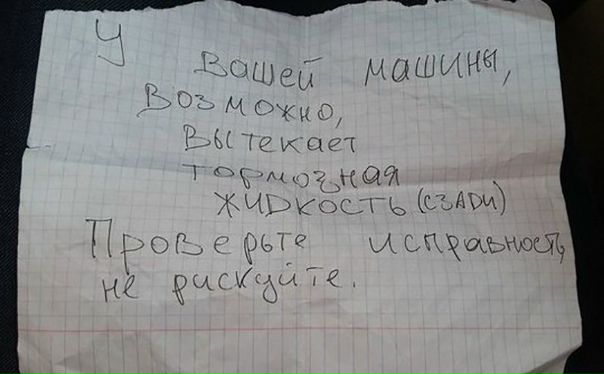 У Вашей машины,
Возможно,
Вытекает
тормозная
жидкость (сзади)
Проверьте исправность,
не рискуйте.